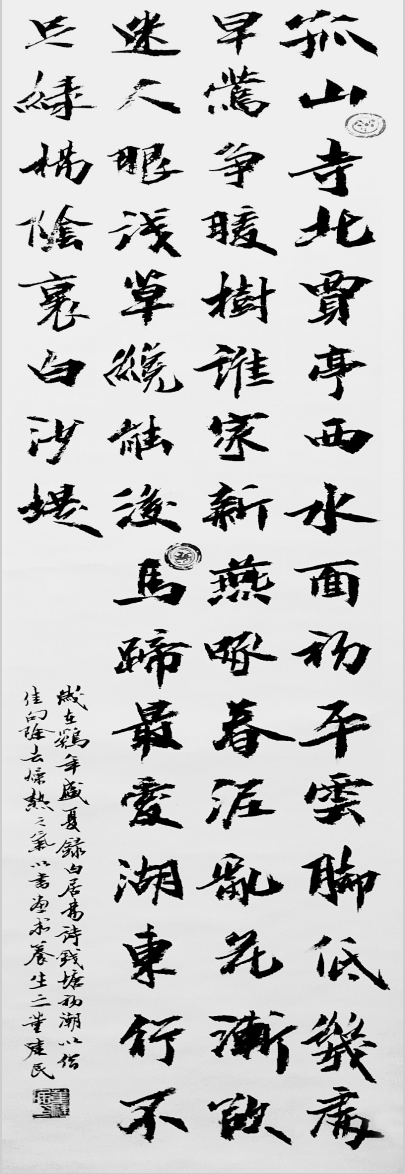 孤山寺北賈亭西水面初平雲脚低幾處
早鶯争暖樹誰家新燕啄春泥亂花漸欲
迷人眼淺草纔能没馬蹄最愛湖東行不
足綠楊陰裏白沙堤
歲在鷄年盛夏録白居易詩錢塘初潮以
佳向除去燥熱之氣以書畫求養生之董建民